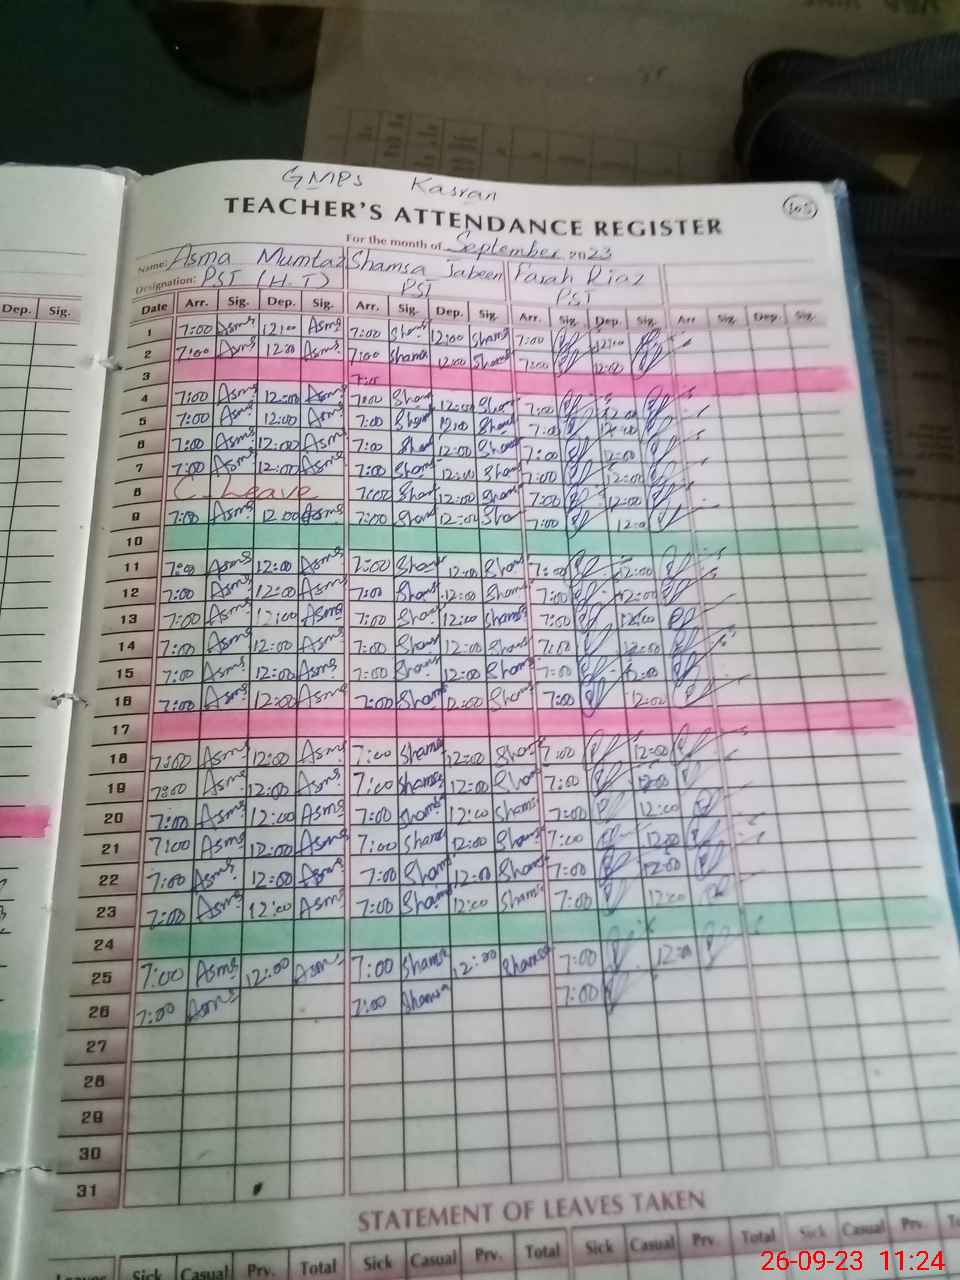 GMPS Kasran
105
TEACHER'S ATTENDANCE REGISTER
For the month of September 2023
Name: Asma Mumtaz Shamsa Jabeen Farah Riaz
Designation: PST (H.T) PST PST
Dep. Sig.
Date Arr. Sig. Dep. Sig. Arr. Sig. Dep. Sig. Arr. Sig. Dep. Sig. Arr Sig. Dep. Sig.
1 7:00 Asma 12:00 Asma 7:00 Sham 12:00 Shams 7:00 12:00
2 7:00 Asma 12:00 Asma 7:00 Shama 12:00 Shams 7:00 12:00
3 7:00
4 7:00 Asma 12:00 Asma 7:00 Sham 12:00 Sham 7:00 12:00
5 7:00 Asma 12:00 Asma 7:00 Sham 12:00 Sham 7:00 12:00
6 7:00 Asma 12:00 Asma 7:00 Sham 12:00 Sham 7:00 12:00
7 7:00 Asma 12:00 Asma 7:00 Sham 12:00 Sham 7:00 12:00
8 C. Leave 7:00 Sham 12:00 Sham 7:00 12:00
9 7:00 Asma 12:00 Asma 7:00 Sham 12:00 Sha 7:00 12:00
10
11 7:00 Asma 12:00 Asma 7:00 Sham 12:00 Sham 7:00 12:00
12 7:00 Asma 12:00 Asma 7:00 Sham 12:00 Sham 7:00 12:00
13 7:00 Asma 12:00 Asma 7:00 Sham 12:00 Shams 7:00 12:00
14 7:00 Asma 12:00 Asma 7:00 Sham 12:00 Sham 7:00 12:00
15 7:00 Asma 12:00 Asma 7:00 Sham 12:00 Sham 7:00 12:00
16 7:00 Asma 12:00 Asma 7:00 Sham 12:00 Sham 7:00 12:00
17
18 7:00 Asma 12:00 Asma 7:00 Shams 12:00 Sham 7:00 12:00
19 7:00 Asma 12:00 Asma 7:00 Shams 12:00 Sham 7:00 12:00
20 7:00 Asma 12:00 Asma 7:00 Shams 12:00 Shams 7:00 12:00
21 7:00 Asma 12:00 Asma 7:00 Shams 12:00 Shams 7:00 12:00
22 7:00 Asma 12:00 Asma 7:00 Sham 12:00 Sham 7:00 12:00
23 7:00 Asma 12:00 Asma 7:00 Sham 12:00 Sham 7:00 12:00
24
25 7:00 Asma 12:00 Asma 7:00 Shamsa 12:00 Shamsa 7:00 12:00
26 7:00 Asma 7:00 Shamsa 7:00
27
28
29
30
31
STATEMENT OF LEAVES TAKEN
Leaves Sick Casual Prv. Total Sick Casual Prv. Total Sick Casual Prv. Total Sick Casual Prv.
26-09-23 11:24